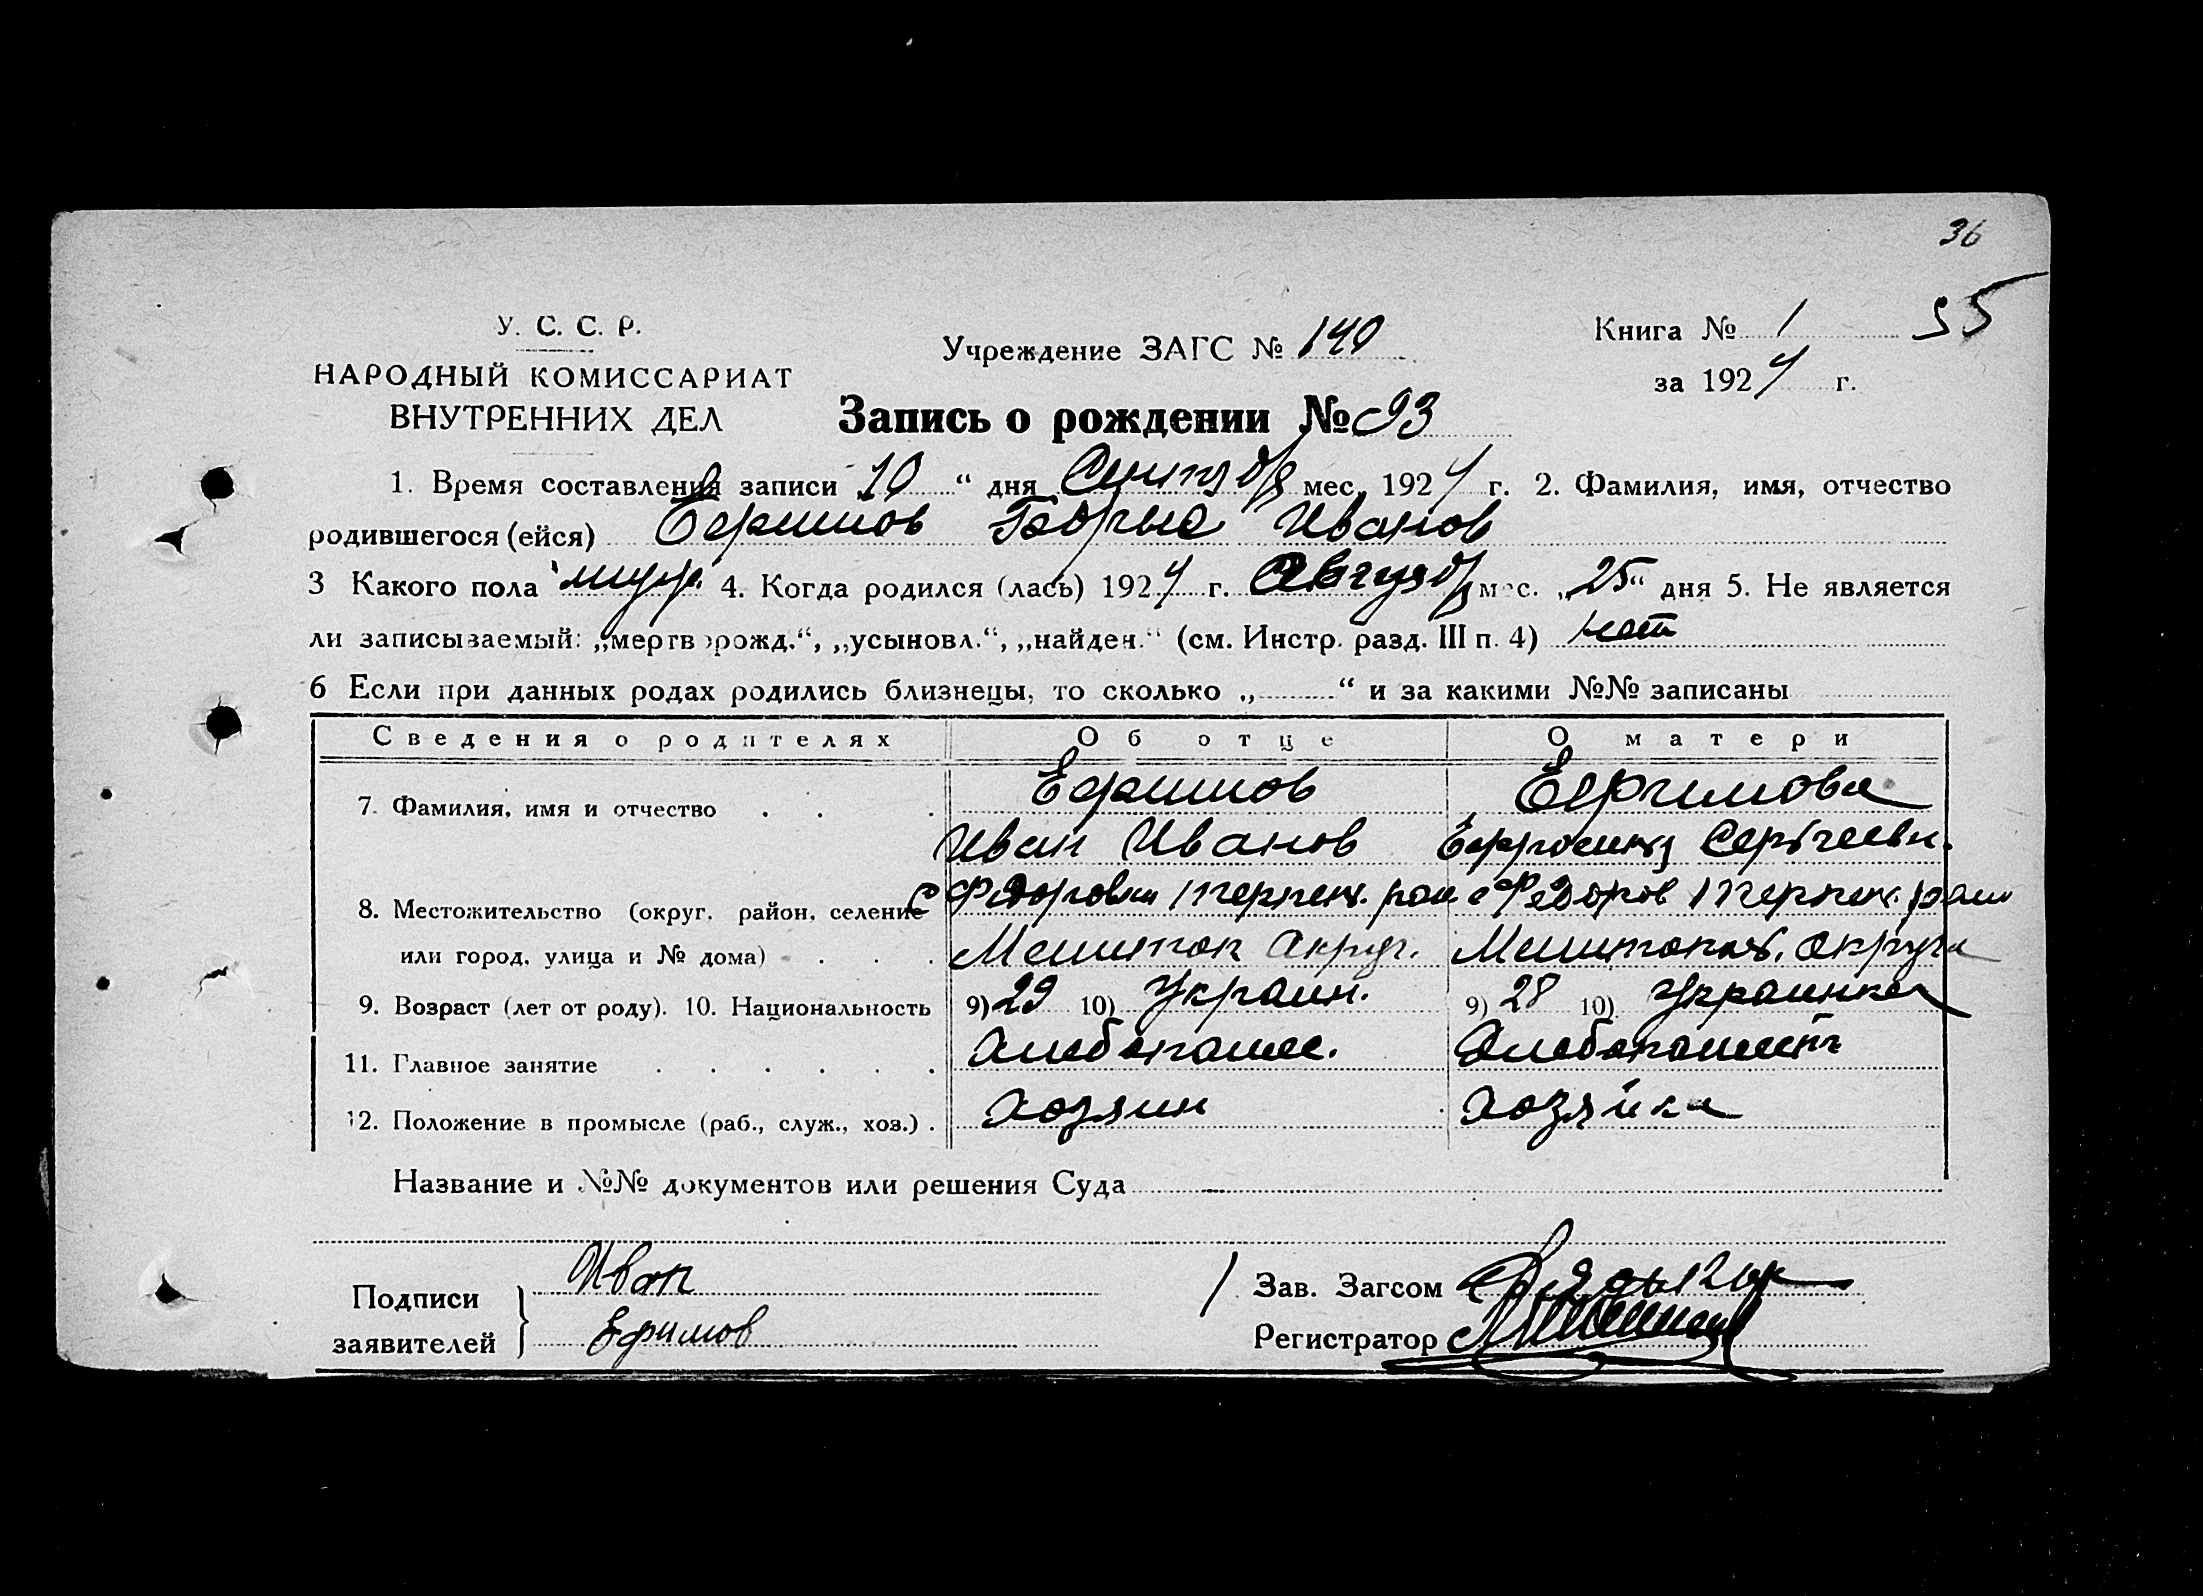 36
У. С. С. Р.
НАРОДНЫЙ КОМИССАРИАТ
ВНУТРЕННИХ ДЕЛ
Учреждение ЗАГС № 140
Книга № 1 35
за 1924 г.
Запись о рождении № 93
1. Время составления записи 10 “ дня Сентября мес. 1924 г. 2. Фамилия, имя, отчество
родившегося (ейся) Ефимов Иванов
3 Какого пола муж. 4. Когда родился (лась) 1924 г. мес. „25“ дня 5. Не является
ли записываемый: „мертворожд.“, „усыновл.“, „найден.“ (см. Инстр. разд. III п. 4) нет
6 Если при данных родах родились близнецы, то сколько „ “ и за какими №№ записаны
Сведения о родителях Об отце О матери
7. Фамилия, имя и отчество Ефимов Ефимова
Иван Иванов Ефросиния Сергеевн.
8. Местожительство (округ, район, селение с Федоровка с Федоров
или город, улица и № дома) Мелитоп Округ. Мелитопол. округа
9. Возраст (лет от роду). 10. Национальность 9) 29 10) Украин. 9) 28 10) Украинка
11. Главное занятие Хлебопаше.
12. Положение в промысле (раб., служ., хоз.) Хозяин Хозяйка
Название и №№ документов или решения Суда
Подписи заявителей } Иван
Ефимов
Зав. Загсом
Регистратор